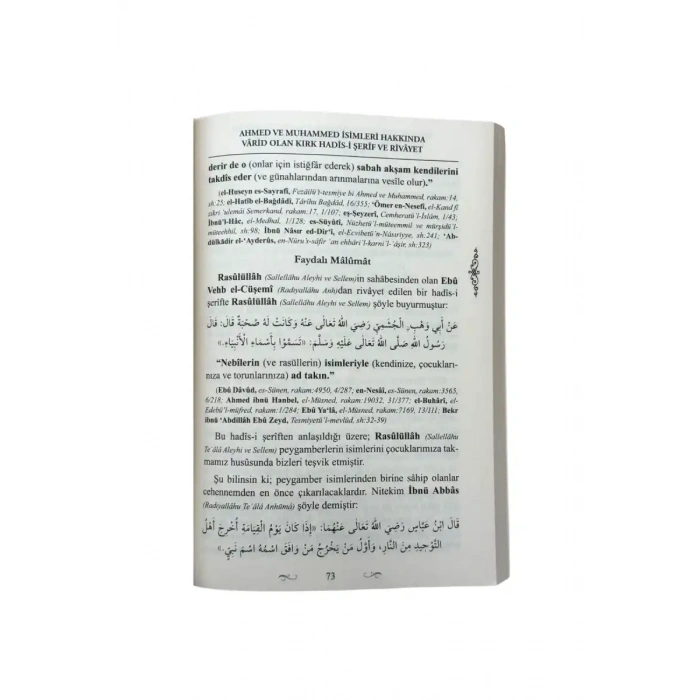 AHMED VE MUHAMMED İSİMLERİ HAKKINDA
VÂRİD OLAN KIRK HADÎS-İ ŞERİF VE RİVÂYET
derir de o (onlar için istiğfâr ederek) sabah akşam kendilerini
takdîs eder (ve günahlarından arınmalarına vesîle olur)."
(el-Huseyn es-Sayrafî, Fezâilü't-tesmiye bi Ahmed ve Muhammed, rakam:14,
sh:25; el-Hatîb el-Bağdâdî, Târîhu Bağdâd, 16/355; 'Ömer en-Nesefî, el-Kand fî
zikri 'ulemâi Semerkand, rakam:17, 1/107; eş-Şeyzerî, Cemheratü'l-İslâm, 1/43;
İbnü'l-Hâc, el-Medhal, 1/128; es-Süyûtî, Nüzhetü'l-müteemmil ve mürşidü'l-
müteehhil, sh:98; İbnü Nâsır ed-Dir'î, el-Ecvibetü'n-Nâsıriyye, sh:241; 'Ab-
dülkâdir el-'Ayderûs, en-Nûru's-sâfir 'an ehbâri'l-karni'l-'âşir, sh:323)
Faydalı Mâlûmât
Rasûlüllâh (Sallellâhu Aleyhi ve Sellem)in sahâbesinden olan Ebû
Vehb el-Cüşemî (Radıyallâhu Anh)dan rivâyet edilen bir hadîs-i
şerîfte Rasûlüllâh (Sallellâhu Aleyhi ve Sellem) şöyle buyurmuştur:
عَنْ أَبِي وَهْبٍ الْجُشَمِيِّ رَضِيَ اللهُ تَعَالَى عَنْهُ وَكَانَتْ لَهُ صُحْبَةٌ قَالَ: قَالَ
رَسُولُ اللهِ صَلَّى اللهُ تَعَالَى عَلَيْهِ وَسَلَّمَ: «تَسَمَّوْا بِأَسْمَاءِ الْأَنْبِيَاءِ.»
"Nebîlerin (ve rasüllerin) isimleriyle (kendinize, çocukları-
nıza ve torunlarınıza) ad takın."
(Ebû Dâvûd, es-Sünen, rakam:4950, 4/287; en-Nesâî, es-Sünen, rakam:3565,
6/218; Ahmed ibnü Hanbel, el-Müsned, rakam:19032, 31/377; el-Buhârî, el-
Edebü'l-müfred, rakam:1/284; Ebû Ya'lâ, el-Müsned, rakam:7169, 13/111; Bekr
ibnü 'Abdillâh Ebû Zeyd, Tesmiyetü'l-mevlûd, sh:32-39)
Bu hadîs-i şerîften anlaşıldığı üzere; Rasûlüllâh (Sallellâhu
Te'âlâ Aleyhi ve Sellem) peygamberlerin isimlerini çocuklarımıza tak-
mamız husûsunda bizleri teşvik etmiştir.
Şu bilinsin ki; peygamber isimlerinden birine sâhip olanlar
cehennemden en önce çıkarılacaklardır. Nitekim İbnü Abbâs
(Radıyallâhu Te'âlâ Anhümâ) şöyle demiştir:
قَالَ ابْنُ عَبَّاسٍ رَضِيَ اللهُ تَعَالَى عَنْهُمَا: «إِذَا كَانَ يَوْمُ الْقِيَامَةِ أُخْرِجَ أَهْلُ
التَّوْحِيدِ مِنَ النَّارِ، وَأَوَّلُ مَنْ يَخْرُجُ مَنْ وَافَقَ اسْمُهُ اسْمَ نَبِيٍّ.»
73